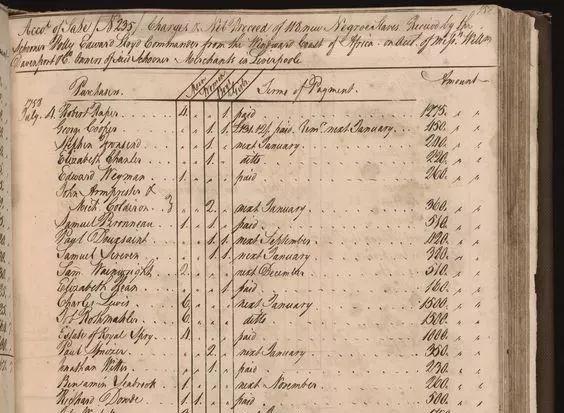 Accot. of Sale (No. 235) Charges & Net Proceed of 118 new Negroe Slaves Received by the
Schooner Polly Edward Lloyd Commander from the Windward Coast of Africa. on Acct. of Messrs. Willm.
Davenport & Co. Owners of said Schooner Merchants in Liverpoole
Purchasers Men Women Boys Girls Terms of Payment. Amount
1758
July. 4. Robert Raper 4 paid 1275
George Cooper 1 1 paid. next January. 450
Stephen Townsend 1 next January. 200
Elizabeth Chanler 1 ditto 220
Edward Weyman 1 paid 260
John Armprester &
2 next January. 360
Samuel Bonneau 1 1 paid 510
Paul Douxsaint 1 1 next September. 420
Samuel 1 1 next January. 300
Sam. Wainwright 2 next December 510
Elizabeth Bean 1 paid 160
Charles Lewis 6 next January 1500
Jo. Rothmahler 6 ditto 1500
Estate of Royal Spry 4 paid 1000
Paul 2 next January. 350
Jonathan Witter 1 paid 230
Benjamin Seabrook 1 next November. 260
Richard Dombe 1 1 paid 500